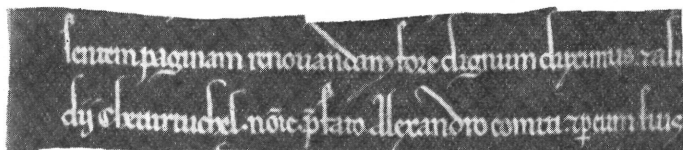 sentem paginam renovandam fore dignum duximus. ⁊ ali
dij Cheturtuchel. nōīe. p̄fato Alexandro comiti ⁊ per eum suis